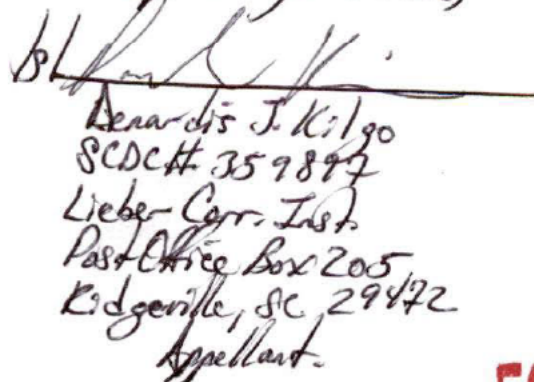 /s/
Denardis J. Kilgo
SCDC# 359897
Lieber Corr. Inst.
Post Office Box 205
Ridgeville, SC 29472
Appellant.